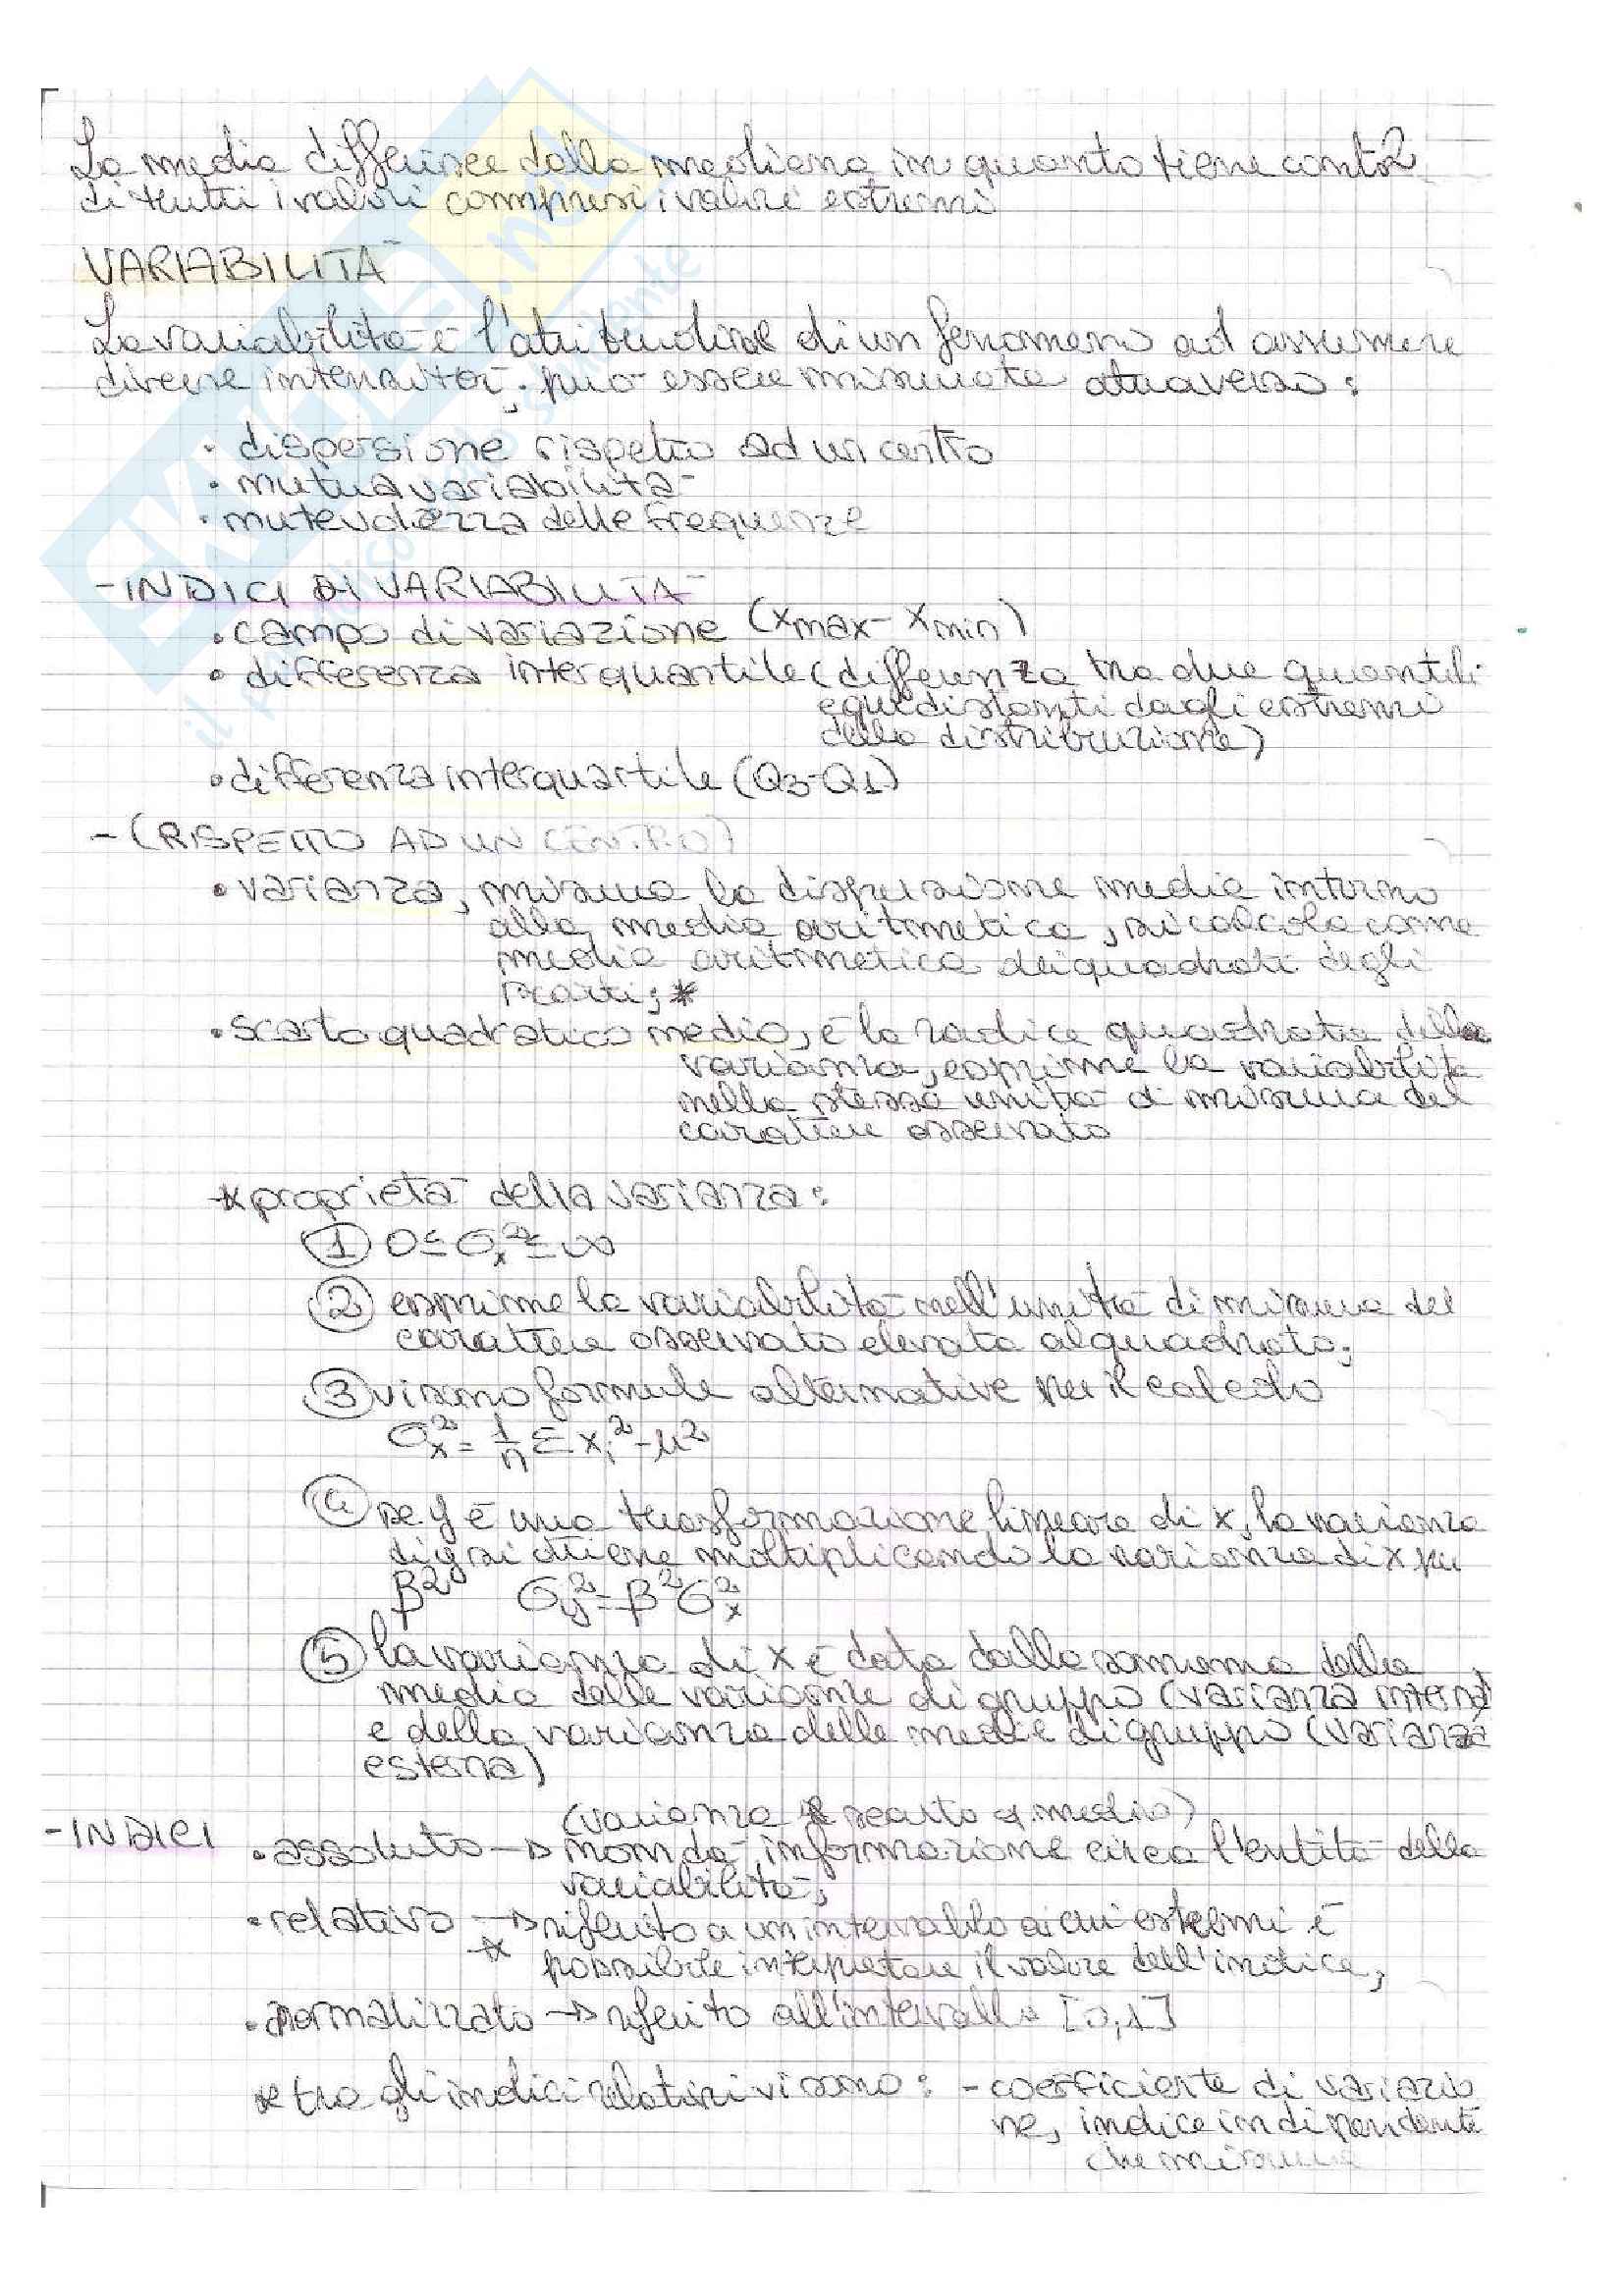 La media differisce dalla mediana in quanto tiene conto
di tutti i valori compresi i valori estremi
VARIABILITÀ
La variabilità è l'attitudine di un fenomeno ad assumere
diverse intensità; può essere misurata attraverso:
• dispersione rispetto ad un centro
• mutua variabilità
• mutevolezza delle frequenze
- INDICI DI VARIABILITÀ
• campo di variazione (xmax - xmin)
• differenza interquantile (differenza tra due quantili
equidistanti dagli estremi
della distribuzione)
• differenza interquartile (Q3-Q1)
- (RISPETTO AD UN CENTRO)
• varianza, misura la dispersione media intorno
alla media aritmetica, si calcola come
media aritmetica dei quadrati degli
scarti; *
• scarto quadratico medio, è la radice quadrata della
varianza, esprime la variabilità
nella stessa unità di misura del
carattere osservato
* proprietà della varianza:
① 0≤σx²≤∞
② esprime la variabilità nell'unità di misura del
carattere osservato elevata al quadrato;
③ vi sono formule alternative per il calcolo
σx² = 1/n Σ xi² - μ²
④ se y è una trasformazione lineare di x, la varianza
di y si ottiene moltiplicando la varianza di x per
β² σy² = β² σx²
⑤ la varianza di x è data dalla somma della
media delle varianze di gruppo (varianza interna)
e della varianza delle medie di gruppo (varianza
esterna)
- INDICI
(varianza scarto q. medio)
• assoluto → non dà informazione circa l'entità della
variabilità;
• relativo → riferito a un intervallo ai cui estremi è
* possibile interpretare il valore dell'indice;
• normalizzato → riferito all'intervallo [0,1]
* tra gli indici relativi vi sono: - coefficiente di variazio
ne, indice indipendente
che misura
SKUOLA.net
il paradiso dello studente